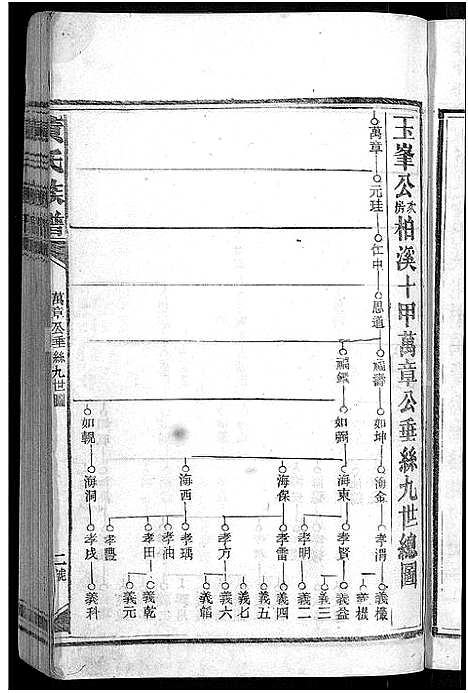 玉峯公次房柏溪十甲萬章公垂絲九世總圖
萬章
元珪
仕中
思道
福壽 福鑑
如坤 如弼 如親
海金 海東 海保 海西 海洞
孝渭 孝賢 孝明 孝雷 孝方 孝瑀 孝油 孝田 孝豊 孝成
義權 義棋 義益 義三 義一 義四 義五 義七 義六 義韜 義乾 義元 義科
黃氏族譜
萬章公垂絲九世圖
二號